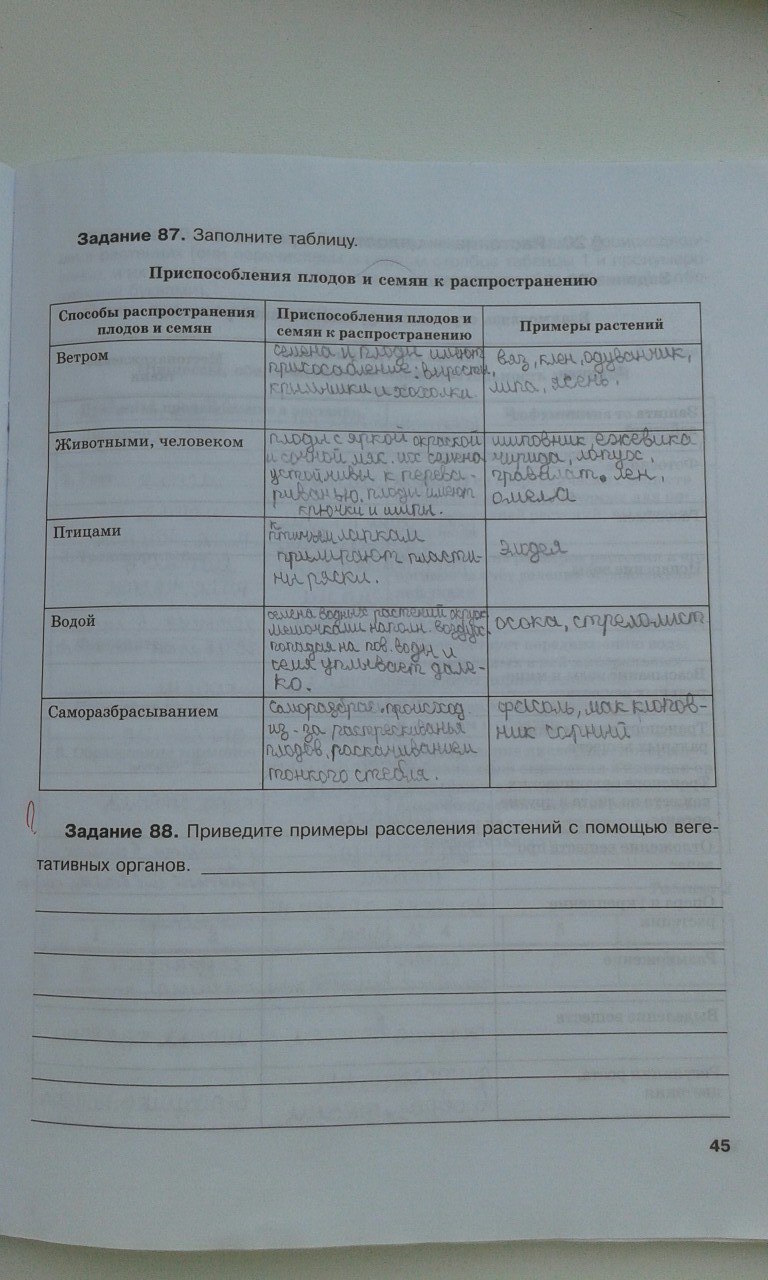 Задание 87. Заполните таблицу.
Приспособления плодов и семян к распространению
Способы распространения плодов и семян
Приспособления плодов и семян к распространению
Примеры растений
Ветром
семена и плоды имеют
присособление: выросты,
крылышки и хохолки.
вяз, клен, одуванчик,
липа, ясень.
Животными, человеком
плоды с яркой окраской
и сочной мяк. их семена
устойчивы к перева-
риванью, плоды имеют
крючки и шипы.
шиповник, ежевика
череда, лопух,
гравилат. лен,
омела
Птицами
к
птичьем лапкам
прилипают пласти-
ны ряски.
элодея
Водой
семена водных растений окруж.
мешочками наполн. воздух.
попадая на пов. воды и
семя уплывает дале-
ко.
осока, стрелолист
Саморазбрасыванием
Саморазбрас. происход.
из-за растрескиванья
плодов, раскачиванием
тонкого стебля.
фасоль, мак клопов-
ник сорный
Задание 88. Приведите примеры расселения растений с помощью веге-
тативных органов.
45